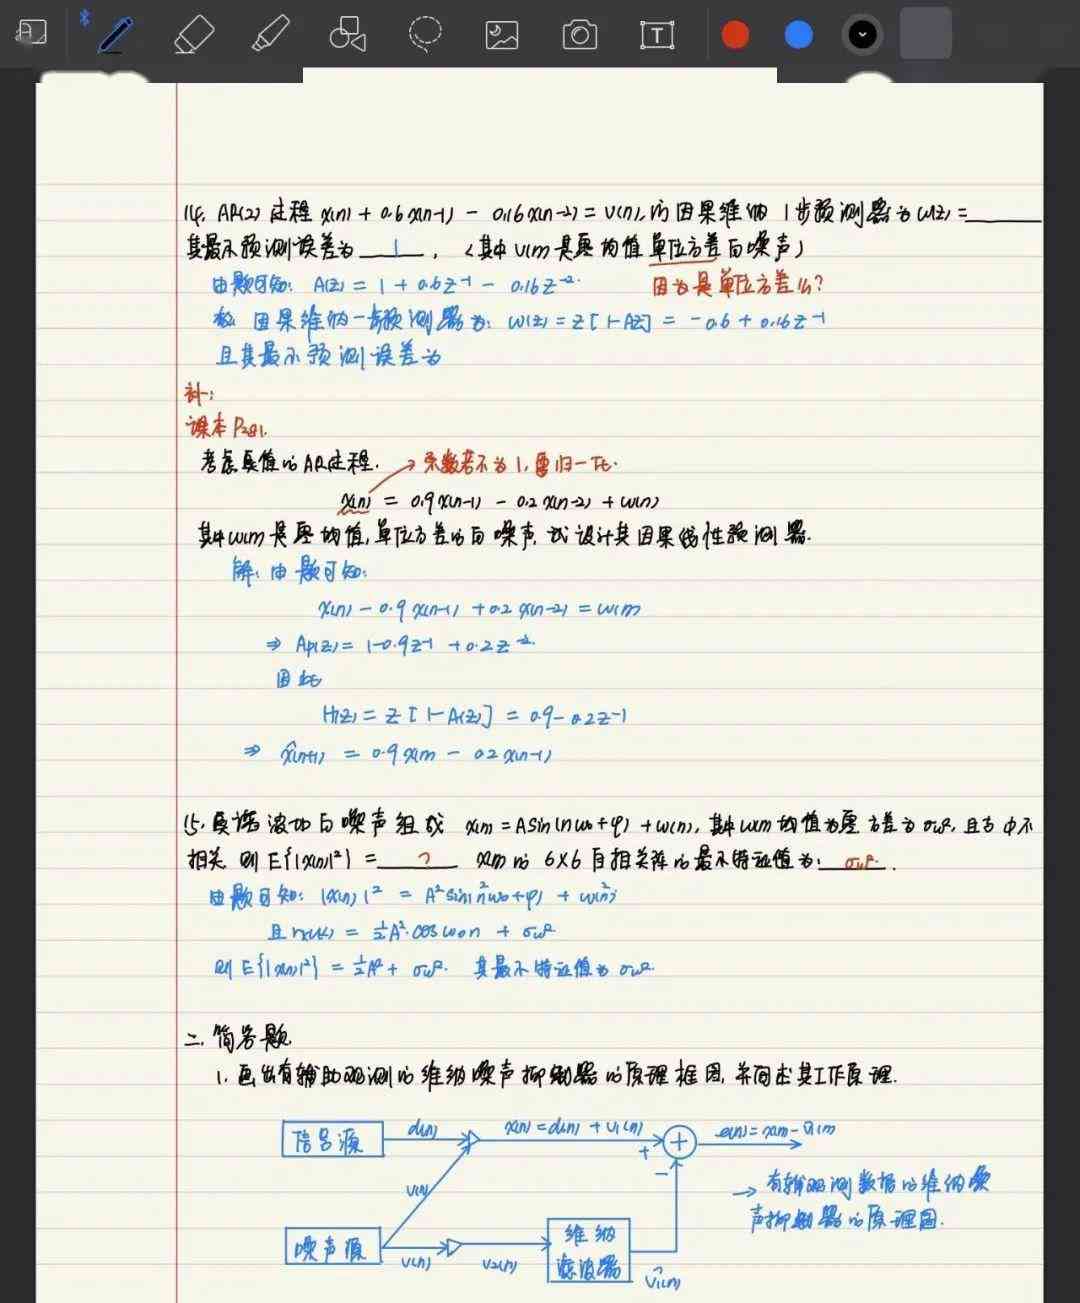 14. AR(2)过程 x(n) + 0.6x(n-1) - 0.16x(n-2) = v(n), 的因果维纳 1步预测器为W(z) = ______
其最小预测误差为 1 . (其中v(n)是零均值单位方差白噪声)
由题可知: A(z) = 1 + 0.6z⁻¹ - 0.16z⁻². 因为是单位方差么?
故 因果维纳一步预测器为: W(z) = z[1-A(z)] = -0.6 + 0.16z⁻¹
且其最小预测误差为
补:
课本P281.
考虑真值的AR过程. → 系数若不为1, 要归一化.
x(n) = 0.9x(n-1) - 0.2x(n-2) + w(n)
其中w(n)是零均值,单位方差的白噪声, 试设计其因果线性预测器.
解: 由题可知:
x(n) - 0.9x(n-1) + 0.2x(n-2) = w(n)
⇒ Ap(z) = 1-0.9z⁻¹ + 0.2z⁻².
因此
H(z) = z[1-A(z)] = 0.9-0.2z⁻¹
⇒ x̂(n+1) = 0.9x(n) - 0.2x(n-1)
15. 由谐波加白噪声组成 x(n) = Asin(nω₀+φ) + w(n), 其中w(n)均值为零 方差为σw², 且与φ不
相关 则E{|x(n)|²} = ? x(n)的 6×6自相关阵的最小特征值为: σw² .
由题可知: |x(n)|² = A²sin²(nω₀+φ) + w(n)²;
且rx(k) = ½A²·cosω₀n + σw²
则E{|x(n)|²} = ½A² + σw². 其最小特征值为σw².
二. 简答题
1. 画出有辅助观测的维纳噪声抑制器的原理框图, 并简述其工作原理.
信号源 d(n) x(n) = d(n) + v₁(n) + e(n) = x(n) - v̂₁(n)
v(n) -
→ 有辅助观测数据的维纳噪
声抑制器的原理图.
噪声源 v(n) v₂(n) 维纳
滤波器 v̂₁(n)